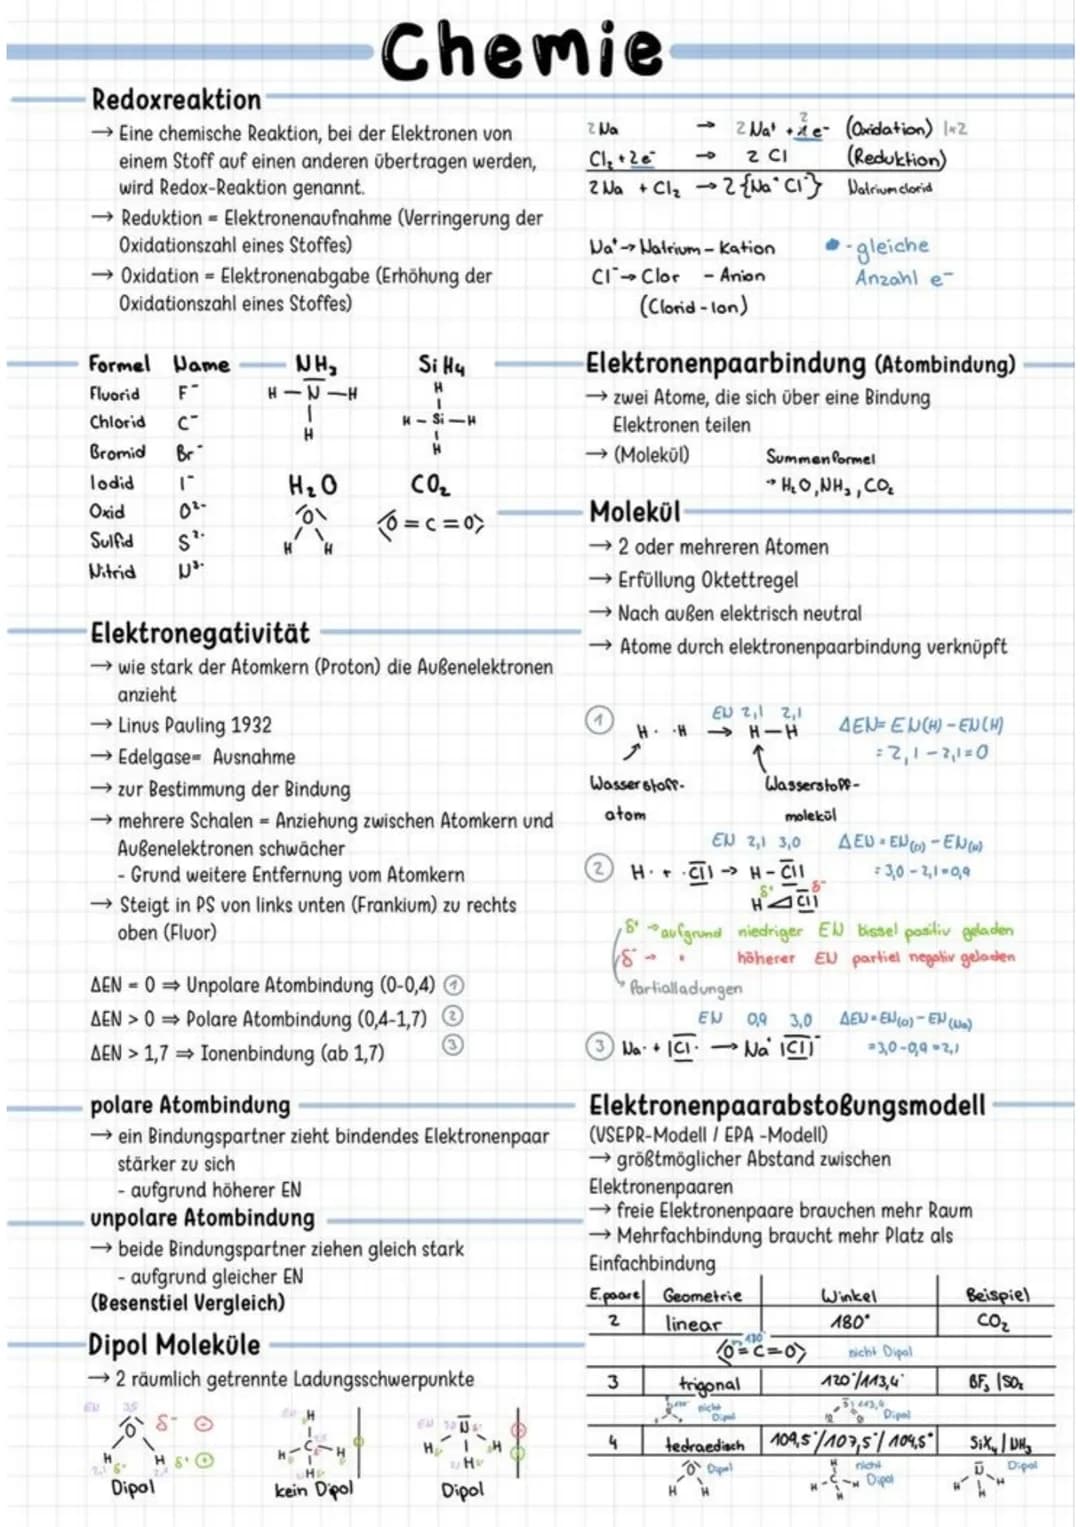 Chemie
Redoxreaktion
→ Eine chemische Reaktion, bei der Elektronen von
einem Stoff auf einen anderen übertragen werden,
wird Redox-Reaktion genannt.
→ Reduktion = Elektronenaufnahme (Verringerung der
Oxidationszahl eines Stoffes)
→ Oxidation = Elektronenabgabe (Erhöhung der
Oxidationszahl eines Stoffes)
2 Na → 2 Na⁺ + 2 e⁻ (Oxidation) |×2
Cl₂ + 2e⁻ → 2 Cl (Reduktion)
2 Na + Cl₂ → 2 {Na⁺Cl⁻} Natriumclorid
Na⁺ → Natrium - Kation
Cl⁻ → Clor - Anion
(Clorid - Ion)
- gleiche
Anzahl e⁻
Formel Name
Fluorid F⁻
Chlorid C⁻
Bromid Br⁻
Iodid I⁻
Oxid O²⁻
Sulfid S²⁻
Nitrid N³⁻
NH₃
H — N — H
H
SiH₄
H
H - Si - H
H
H₂O
O
H H
CO₂
O = C = O
Elektronenpaarbindung (Atombindung)
→ zwei Atome, die sich über eine Bindung
Elektronen teilen
→ (Molekül)
Summenformel
→ H₂O, NH₃, CO₂
Molekül
→ 2 oder mehreren Atomen
→ Erfüllung Oktettregel
→ Nach außen elektrisch neutral
→ Atome durch elektronenpaarbindung verknüpft
Elektronegativität
→ wie stark der Atomkern (Proton) die Außenelektronen
anzieht
→ Linus Pauling 1932
→ Edelgase= Ausnahme
→ zur Bestimmung der Bindung
→ mehrere Schalen = Anziehung zwischen Atomkern und
Außenelektronen schwächer
- Grund weitere Entfernung vom Atomkern
→ Steigt in PS von links unten (Frankium) zu rechts
oben (Fluor)
ΔEN = 0 ⇒ Unpolare Atombindung (0-0,4) ①
ΔEN > 0 ⇒ Polare Atombindung (0,4-1,7) ②
ΔEN > 1,7 ⇒ Ionenbindung (ab 1,7) ③
EN 2,1 2,1
① H· ·H → H—H
ΔEN= EN(H) - EN(H)
= 2,1 - 2,1 = 0
Wasserstoff-
atom
Wasserstoff-
molekül
EN 2,1 3,0
ΔEN = EN(Cl) - EN(H)
② H· + ·Cl| → H - Cl|
= 3,0 - 2,1 = 0,9
δ⁺ δ⁻
H Cl|
δ⁺ → aufgrund niedriger EN bissel positiv geladen
δ⁻ → " höherer EN partiel negativ geladen
Partialladungen
EN 0,9 3,0
ΔEN = EN(Cl) - EN(Na)
③ Na· + |Cl· → Na⁺ |Cl|⁻
= 3,0 - 0,9 = 2,1
polare Atombindung
→ ein Bindungspartner zieht bindendes Elektronenpaar
stärker zu sich
- aufgrund höherer EN
unpolare Atombindung
→ beide Bindungspartner ziehen gleich stark
- aufgrund gleicher EN
(Besenstiel Vergleich)
Dipol Moleküle
→ 2 räumlich getrennte Ladungsschwerpunkte
EN 3,5
O δ⁻ ⊖
H H δ⁺ ⊕
Dipol
H
H - C - H
H
kein Dipol
N
H H
H
Dipol
Elektronenpaarabstoßungsmodell
(VSEPR-Modell / EPA -Modell)
→ größtmöglicher Abstand zwischen
Elektronenpaaren
→ freie Elektronenpaare brauchen mehr Raum
→ Mehrfachbindung braucht mehr Platz als
Einfachbindung
E.paare Geometrie Winkel Beispiel
2 linear 180° CO₂
180°
O = C = O nicht Dipol
3 trigonal 120°/113,4° BF₃ | SO₂
nicht Dipol
Dipol
4 tedraedisch 109,5°/107,5°/104,5° SiX₄ | NH₃
O Dipol
H H
H
H - C - H
H
nicht Dipol
N Dipol
H H
H